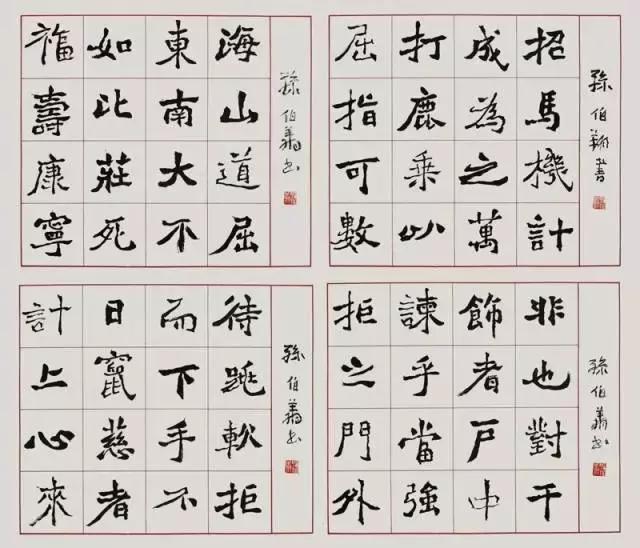 孫伯翔書
招馬機計
成為之萬
打鹿乘以
屈指可數
孫伯翔书
海山道屈
東南大不
如比莊死
福壽康寧
孫伯翔书
非也對干
飾者戸中
諫乎當強
拒之門外
孫伯翔书
待跳軟拒
而下手不
日竄慈者
計上心來